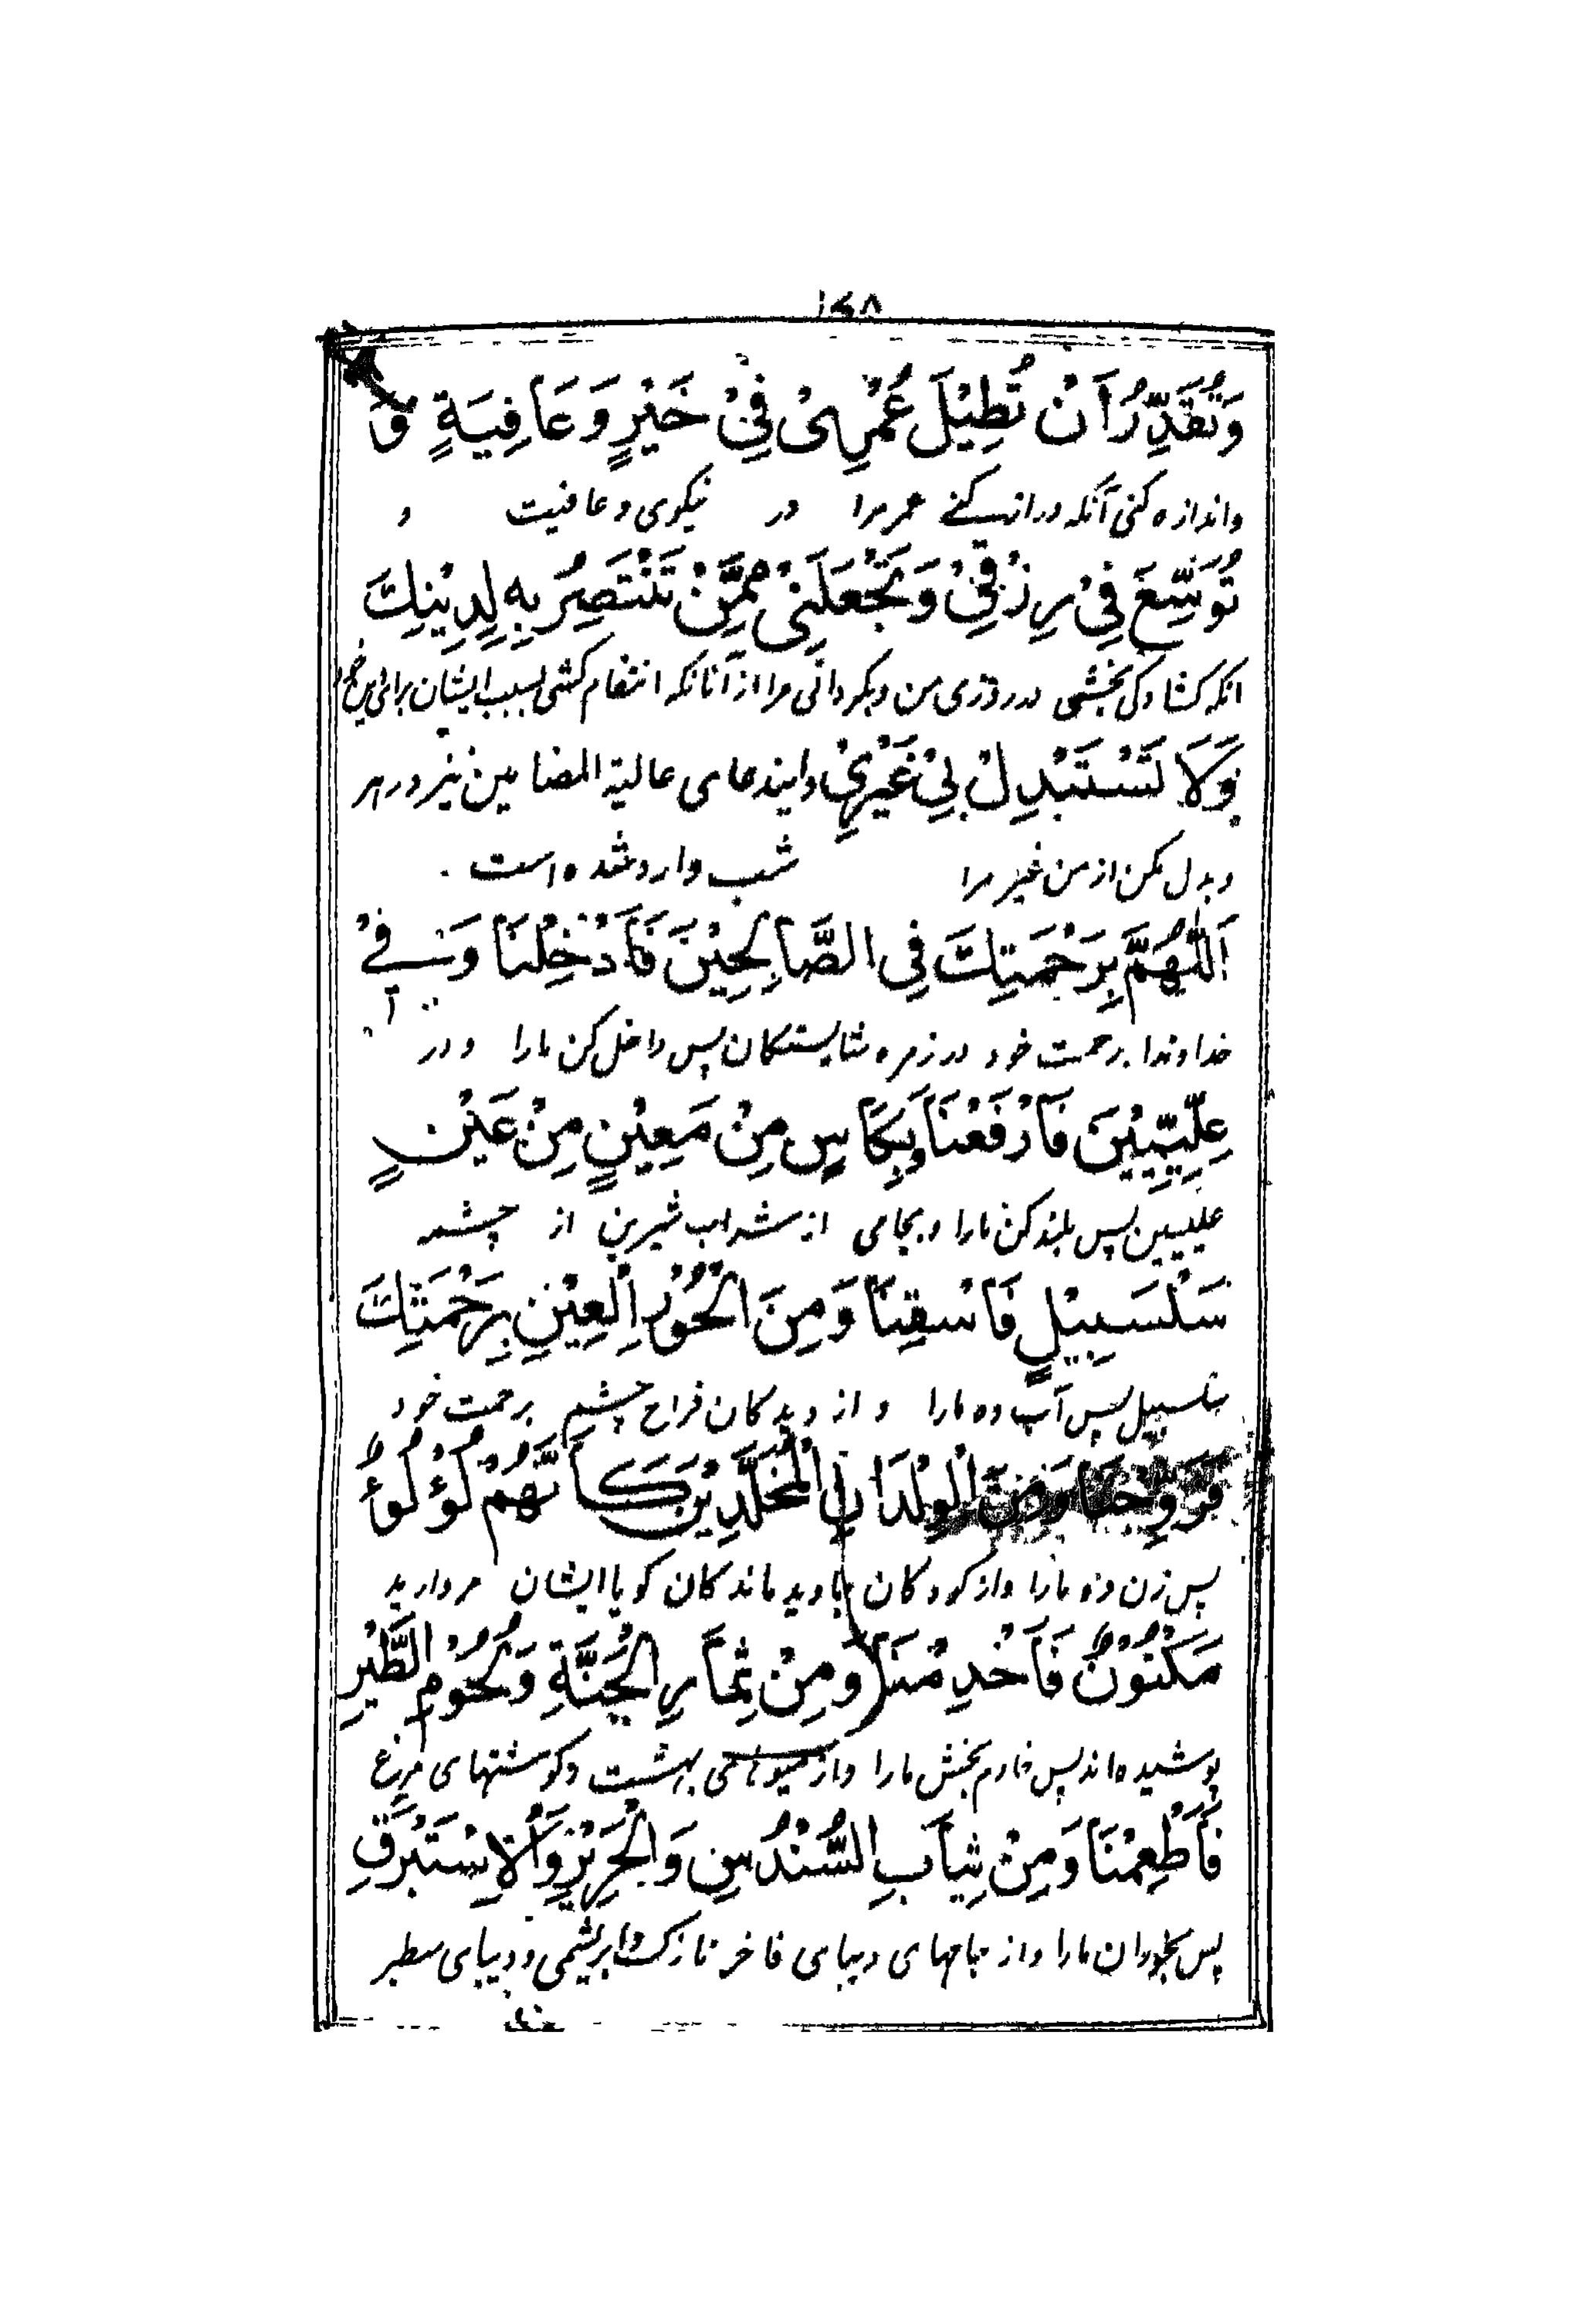 ۱۴۸
وَتُقَدِّرُ اَنْ تُطِيْلَ عُمْرِىْ فِيْ خَيْرٍ وَ عَافِيَةٍ وَ
واندازه کنی آنکه دراز کنے عمر مرا در نیکوی و عافیت و
تُوَسِّعَ فِيْ رِزْقِيْ وَ تَجْعَلَنِيْ مِمَّنْ تَنْتَصِرُ بِهِ لِدِيْنِكَ
انکه کشادکی بخشی در روزی من و بکردانی مرا از آنانکه انتقام کشی بسبب ایشان برای
وَلَا تَسْتَبْدِلْ بِيْ غَيْرِيْ و ایندعای عالیة المضامین نیز در هر
و بدل مکن از من غیر مرا شب وارد شده است .
اَللّٰهُمَّ بِرَحْمَتِكَ فِي الصَّالِحِيْنَ فَاَدْخِلْنَا وَ فِيْ
خداوندا برحمت خود در زمره شایستکان پس داخل کن مارا و در
عِلِّيِّيْنَ فَارْفَعْنَا وَبِكَاسٍ مِنْ مَعِيْنٍ مِنْ عَيْنٍ
علیین پس بلند کن مارا و بجامی از شراب شیرین از چشمه
سَلْسَبِيْلٍ فَاسْقِنَا وَمِنَ الْحُوْرِ الْعِيْنِ بِرَحْمَتِكَ
سلسبیل پس آب ده مارا و از دیدکان فراخ چشم برحمت خود
فَزَوِّجْنَا وَمِنَ الْوِلْدَانِ الْمُخَلَّدِيْنَ كَاَنَّهُمْ لُؤْلُؤٌ
پس زن ده مارا و از کودکان جاوید ماندکان کویا ایشان مروارید
مَكْنُوْنٌ فَاَخْدِمْنَا وَمِنْ ثِمَارِ الْجَنَّةِ وَلُحُوْمِ الطَّيْرِ
پوشیده اند پس خادم بخش مارا و از میوهای بهشت و کوشتهای مرغ
فَاَطْعِمْنَا وَمِنْ ثِيَابِ السُّنْدُسِ وَالْحَرِيْرِ وَالْاِسْتَبْرَقِ
پس بخوران مارا و از جامهای دیبای فاخر نازک و ابریشمی و دیبای سطبر